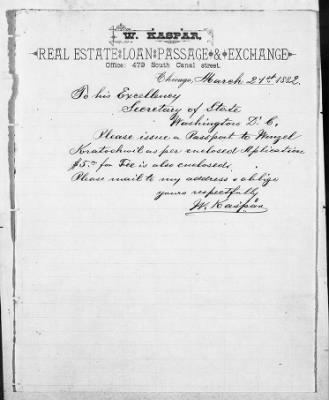 W. KASPAR,
REAL ESTATE LOAN PASSAGE & EXCHANGE
Office: 479 South Canal street.
Chicago, March 21st 1882.
To his Excellency
Secretary of State
Washington D. C.
Please issue a Passport to Wenzel
Kratochwil as per enclosed Application
$5.00 for Fee is also enclosed.
Please mail to my address & oblige
yours respectfully
W. Kaspar